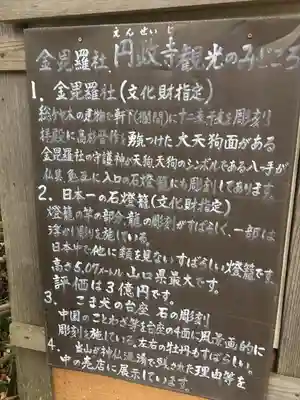 えんせいじ
金毘羅社、円政寺観光のみどころ
1. 金毘羅社(文化財指定)
総ケヤキの建物で軒下(欄間)に十二支干支を彫刻
拝殿に高杉晋作を勇気つけた大天狗面がある
金毘羅社の守護神が天狗、天狗のシンボルである八ツ手が
仏具、入口の石燈籠にも彫刻してあります
2. 日本一の石燈籠(文化財指定)
燈籠の竿の部分、龍の彫刻がすばらしく、一部は
浮かり彫りを施している。
日本中で他に類を見ないすばらしい燈籠です。
高さ5.07メートル 山口県最大です。
評価は3億円です。
3. こま犬の台座 石の彫刻
中国のことわざ等を台座の4面に風景画的に
彫刻を施している。左右の牡丹もすばらしい。
4. 当山が神仏混淆で残された理由等を
中の売店に展示しています。